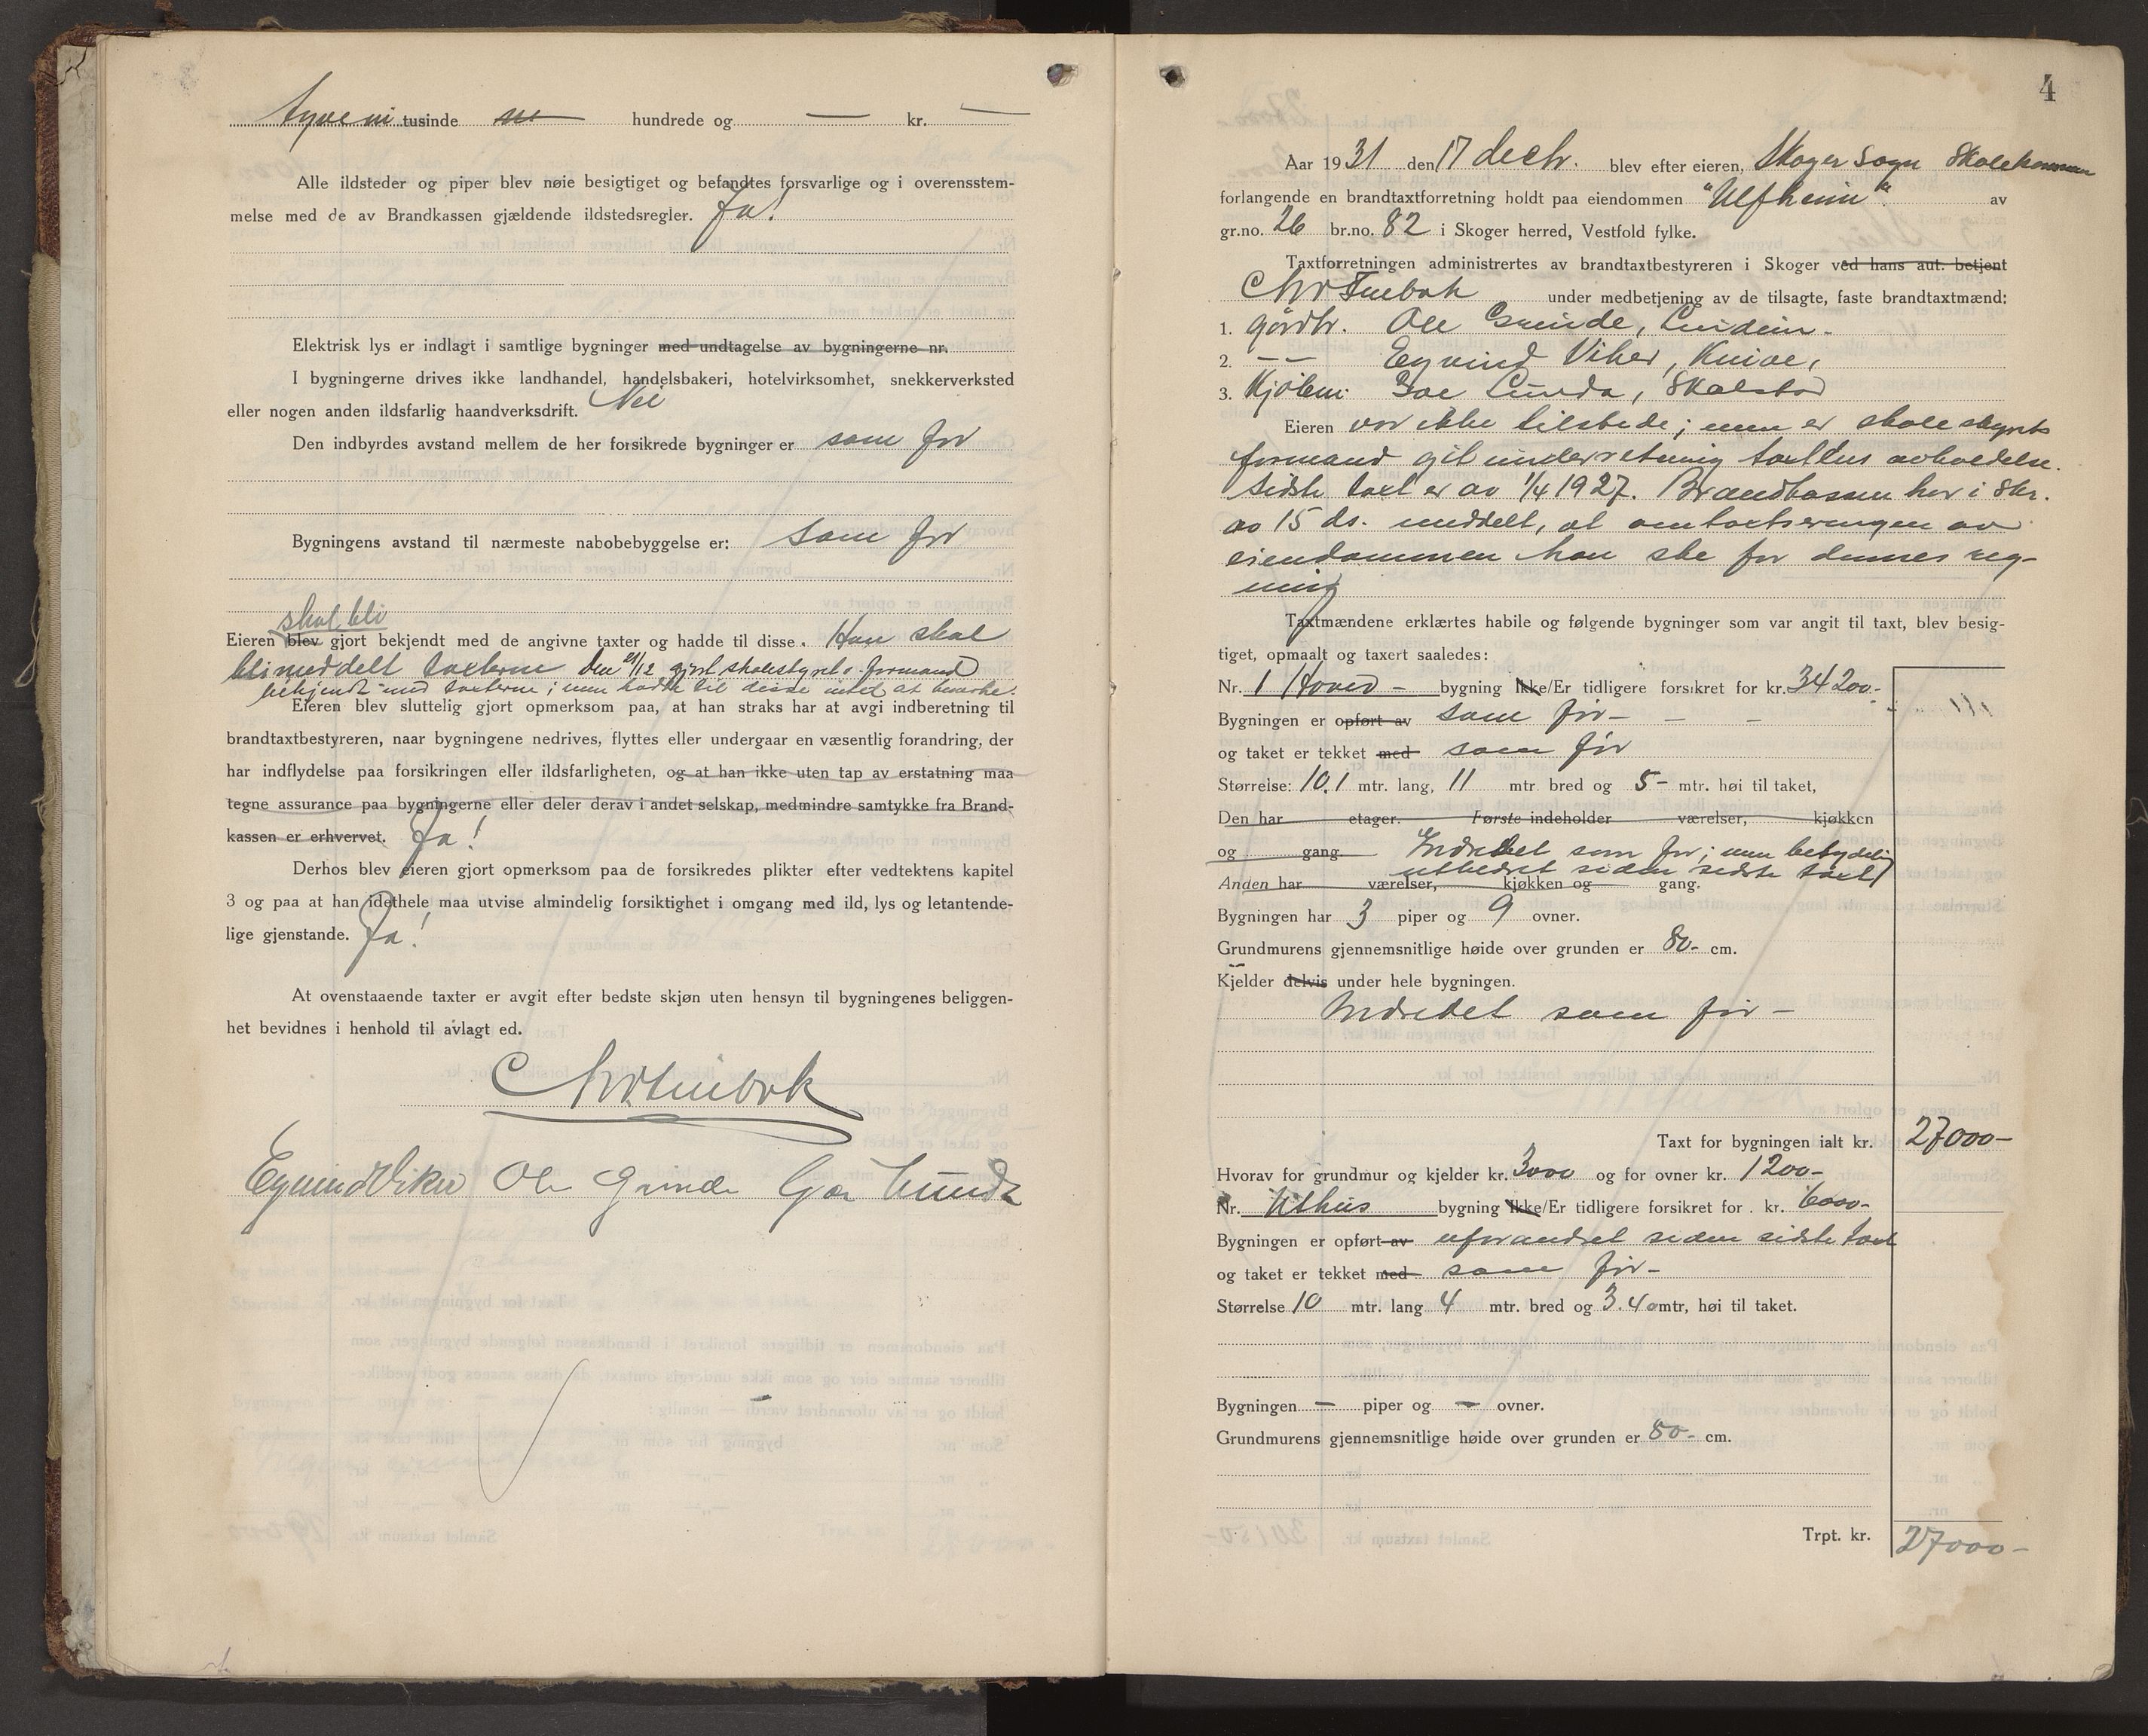 tyveni tusinde hundrede og — kr. —
Alle ildsteder og piper blev nøie besigtiget og befandtes forsvarlige og i overensstem-
melse med de av Brandkassen gjældende ildstedsregler. Ja!
Elektrisk lys er indlagt i samtlige bygninger med undtagelse av bygningerne nr.
I bygningerne drives ikke landhandel, handelsbakeri, hotelvirksomhet, snekkerverksted
eller nogen anden ildsfarlig haandverksdrift. Nei
Den indbyrdes avstand mellem de her forsikrede bygninger er som før
Bygningens avstand til nærmeste nabobebyggelse er: som før
skal bli
Eieren blev gjort bekjendt med de angivne taxter og hadde til disse. Han skal
bli meddelt taxterne den 21/12 gjort skolestyrets formand
bekjendt med taxterne; men hadde til disse intet at bemerke.
Eieren blev sluttelig gjort opmerksom paa, at han straks har at avgi indberetning til
brandtaxtbestyreren, naar bygningene nedrives, flyttes eller undergaar en væsentlig forandring, der
har indflydelse paa forsikringen eller ildsfarligheten, og at han ikke uten tap av erstatning maa
tegne assurance paa bygningerne eller deler derav i andet selskap, medmindre samtykke fra Brand-
kassen er erhvervet. Ja!
Derhos blev eieren gjort opmerksom paa de forsikredes plikter efter vedtektens kapitel
3 og paa at han idethele maa utvise almindelig forsiktighet i omgang med ild, lys og letantende-
lige gjenstande. Ja!
At ovenstaaende taxter er avgit efter bedste skjøn uten hensyn til bygningenes beliggen-
het bevidnes i henhold til avlagt ed.
Eyvind Viker Ole Grinde Lunde
4
Aar 1931 den 17 decbr. blev efter eieren, Skoger Sogn Skolekommune
forlangende en brandtaxtforretning holdt paa eiendommen "Ulfheim". av
gr.no. 26 br.no. 82 i Skoger herred, Vestfold fylke.
Taxtforretningen administrertes av brandtaxtbestyreren i Skoger ved hans aut. betjent
under medbetjening av de tilsagte, faste brandtaxtmænd:
1. gårdbr. Ole Grinde, Lindum.
2. — — Eyvind Viker, Knive,
3. Kjøbm. Lunde, Skalstad
Eieren var ikke tilstede; men er skolestyrets
formand git underretning taxtens avholdelse.
Sidste taxt er av 1/4 1927. Brandkassen har i skr.
av 15 ds. meddelt, at omtaxteringen av
eiendommen kan ske for dennes reg-
ning
Taxtmændene erklærtes habile og følgende bygninger som var angit til taxt, blev besig-
tiget, opmaalt og taxert saaledes:
Nr. 1 Hoved - bygning Ikke/Er tidligere forsikret for kr. 34200.-
Bygningen er opført av som før - - -
og taket er tekket med som før
Størrelse: 10.1 mtr. lang, 11 mtr. bred og 5- mtr. høi til taket,
Den har etager. Første indeholder værelser, kjøkken
og gang. Indredet som før; men betydelig
utbedret siden sidste taxt
Anden har værelser, kjøkken og gang.
Bygningen har 3 piper og 9 ovner.
Grundmurens gjennemsnitlige høide over grunden er 80- cm.
Kjelder delvis under hele bygningen.
Indredet som før -
Taxt for bygningen ialt kr. 27000-
Hvorav for grundmur og kjelder kr. 3000 og for ovner kr. 1200-
Nr. Uthus bygning Ikke/Er tidligere forsikret for . kr. 6000-
Bygningen er opført av uforandret siden sidste taxt
og taket er tekket med som før-
Størrelse 10 mtr. lang 4 mtr. bred og 3.40 mtr, høi til taket.
Bygningen — piper og — ovner.
Grundmurens gjennemsnitlige høide over grunden er 50- cm.
Trpt. kr. 27000-